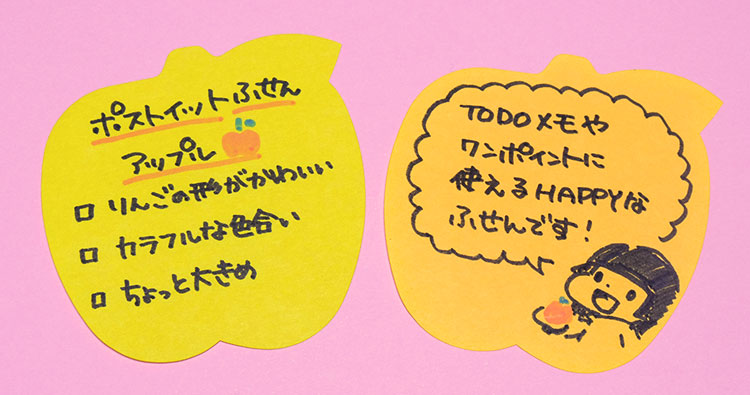 ポストイットふせん
アップル
□ りんごの形がかわいい
□ カラフルな色合い
□ ちょっと大きめ
TODOメモや
ワンポイントに
使えるHAPPYな
ふせんです!